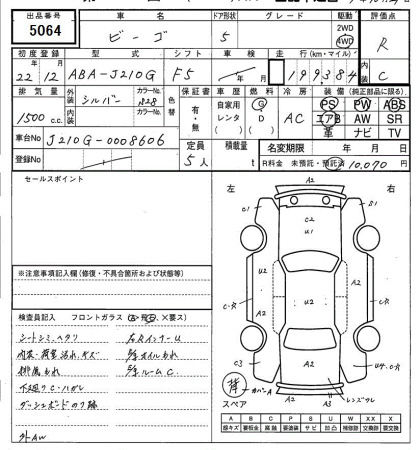 出品番号 車名 ドア形状 グレード 駆動 評価点
5064 ビーゴ 5 2WD 4WD R
初度登録 型式 シフト 車検 走行(km・マイル) 内装
22年12月 ABA-J210G F5 年 月 199384 C
排気量 外装 シルバー カラーNo. 1828 色替 保証書 車歴 燃料 冷房 装備(純正部品に限る)
1500c.c. 内装 カラーNo. 有・無 自家用 レンタ ( ) G D ( ) AC PS PW ABS
エアB AW SR
革 ナビ TV
車台No J210G-0008606
登録No 定員 5人 積載量 t 名変期限 年 月 日
R料金 未預託・預託済 10,070円
セールスポイント
左 右
A2
C1 S1
C2
U1
U2 U2 A2
A2
C3 A2
A2 A3
レンズワレ
スペア
※注意事項記入欄(修復・不具合箇所および状態等)
検査員記入 フロントガラス(A・飛石・X要ス)
シートシミ、ヘタリ
内装・荷室 汚れ、キズ
排風もれ
下廻りC・ハガレ
ダッシュボードのり跡
外AW
右Rインナー U
オイルもれ
ルームC.
A B C P S U W XX X
線キズ 要板金 腐蝕 要塗装 サビ 凹凸 補修跡 交換跡 要交換